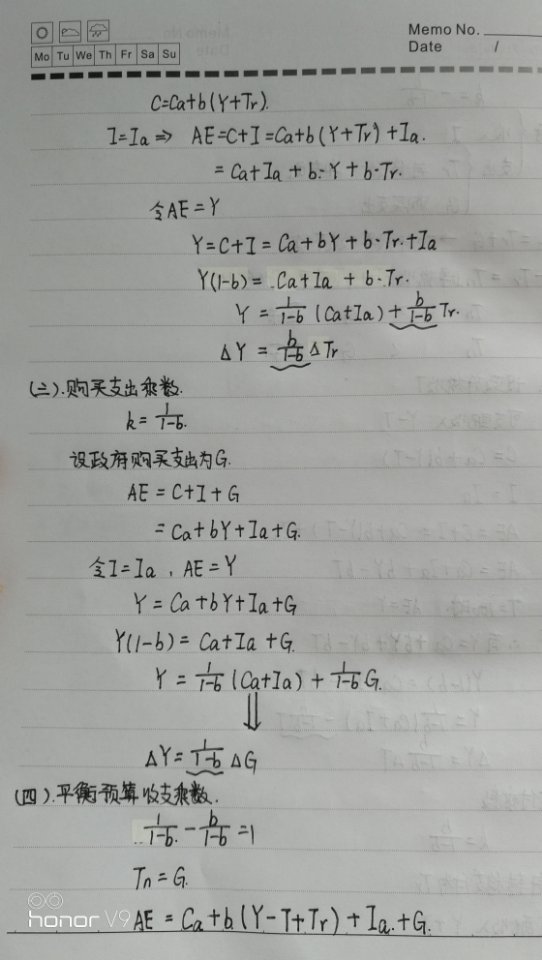 Memo No.
Mo Tu We Th Fr Sa Su
Date /
C=Ca+b(Y+Tr).
I=Ia⇒ AE=C+I=Ca+b(Y+Tr)+Ia.
=Ca+Ia+b·Y+b·Tr.
令AE=Y
Y=C+I=Ca+bY+b·Tr.+Ia
Y(1-b)=Ca+Ia+b·Tr.
Y=1/(1-b)(Ca+Ia)+b/(1-b)Tr.
ΔY=b/(1-b)ΔTr
(二).购买支出乘数.
k=1/(1-b).
设政府购买支出为G.
AE=C+I+G
=Ca+bY+Ia+G.
令I=Ia,AE=Y
Y=Ca+bY+Ia+G
Y(1-b)=Ca+Ia+G.
Y=1/(1-b)(Ca+Ia)+1/(1-b)G.
⇓
ΔY=1/(1-b)ΔG
(四).平衡预算收支乘数.
1/(1-b)-b/(1-b)=1
Tn=G.
AE=Ca+b(Y-T+Tr)+Ia.+G.
honor V9